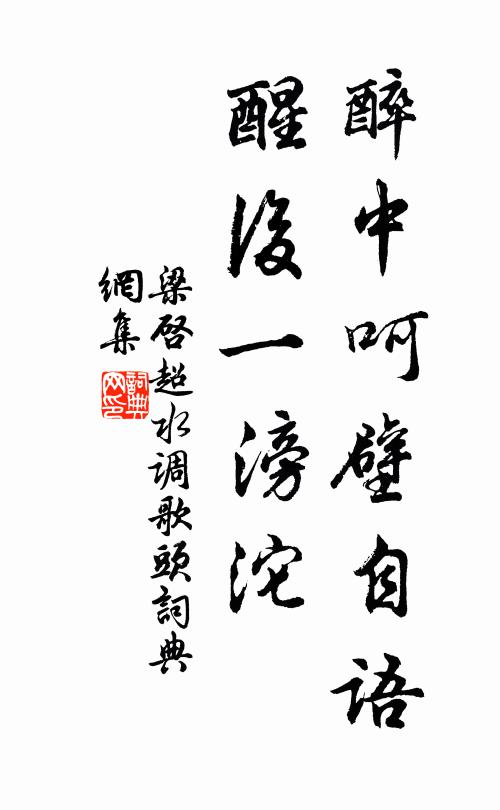 醉中呵壁自語
醒後一滂沱
梁啓超水调歌頭詞典
網集
詞典
网印